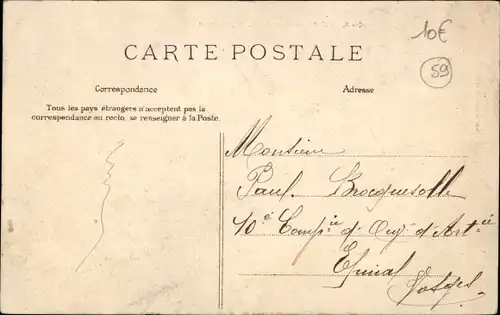 10€
59
CARTE POSTALE
Correspondance
Adresse
Tous les pays étrangers n'acceptent pas la
correspondance au recto, se renseigner à la Poste.
Monsieur
Paul Brocquesolle
10e Compie d'Ouv d'Artie
Epinal
Vosges